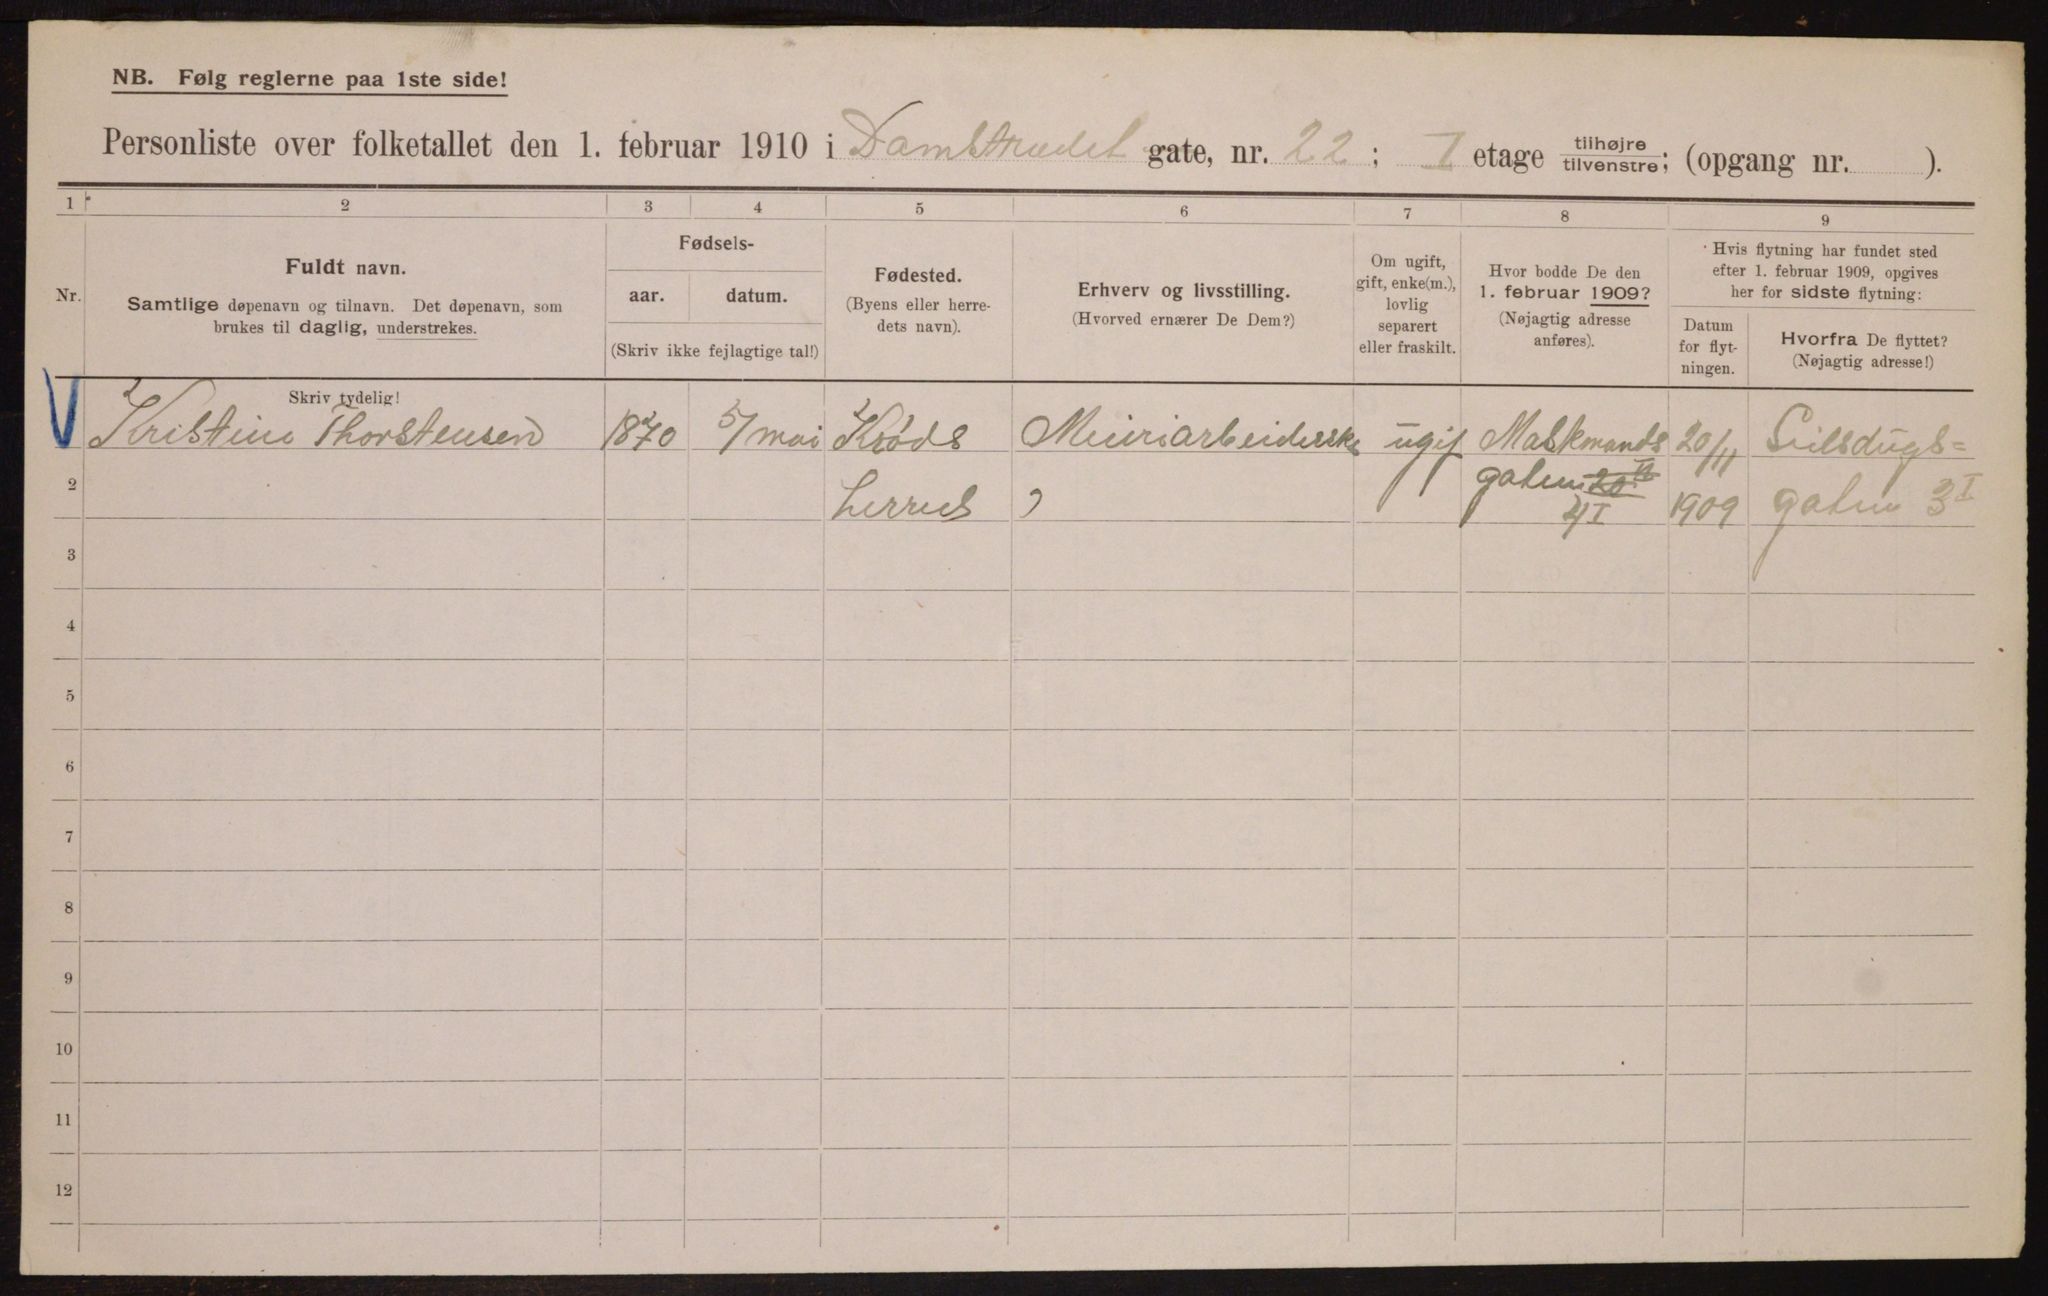 NB. Følg reglerne paa 1ste side!
Personliste over folketallet den 1. februar 1910 i Damstrædet gate, nr. 22; I etage tilhøjre/tilvenstre; (opgang nr. ).
1 2 3 4 5 6 7 8 9
Nr.
Fuldt navn.
Samtlige døpenavn og tilnavn. Det døpenavn, som
brukes til daglig, understrekes.
Skriv tydelig!
Fødsels-
aar. datum.
(Skriv ikke fejlagtige tal!)
Fødested.
(Byens eller herre-
dets navn).
Erhverv og livsstilling.
(Hvorved ernærer De Dem?)
Om ugift,
gift, enke(m.),
lovlig
separert
eller fraskilt.
Hvor bodde De den
1. februar 1909?
(Nøjagtig adresse
anføres).
Hvis flytning har fundet sted
efter 1. februar 1909, opgives
her for sidste flytning:
Datum
for flyt-
ningen.
Hvorfra De flyttet?
(Nøjagtig adresse!)
Kristine Thorstensen 1870 5/mai Krøds Meieriarbeiderske ugif Maskmands 20/11 Seilsdugs=
2 herred gaten 1909 gaten 3 I
4 I
3
4
5
6
7
8
9
10
11
12